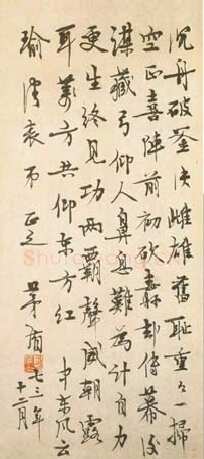 沉舟破釜决雌雄旧耻重重一扫
空正喜阵前初砍纛却传幕后
谋藏弓仰人鼻息难为计自力
更生终见功两霸声威朝露
耳万方共仰东方红 中东风云
瑜清表弟 正之 茅盾 七三年
十二月